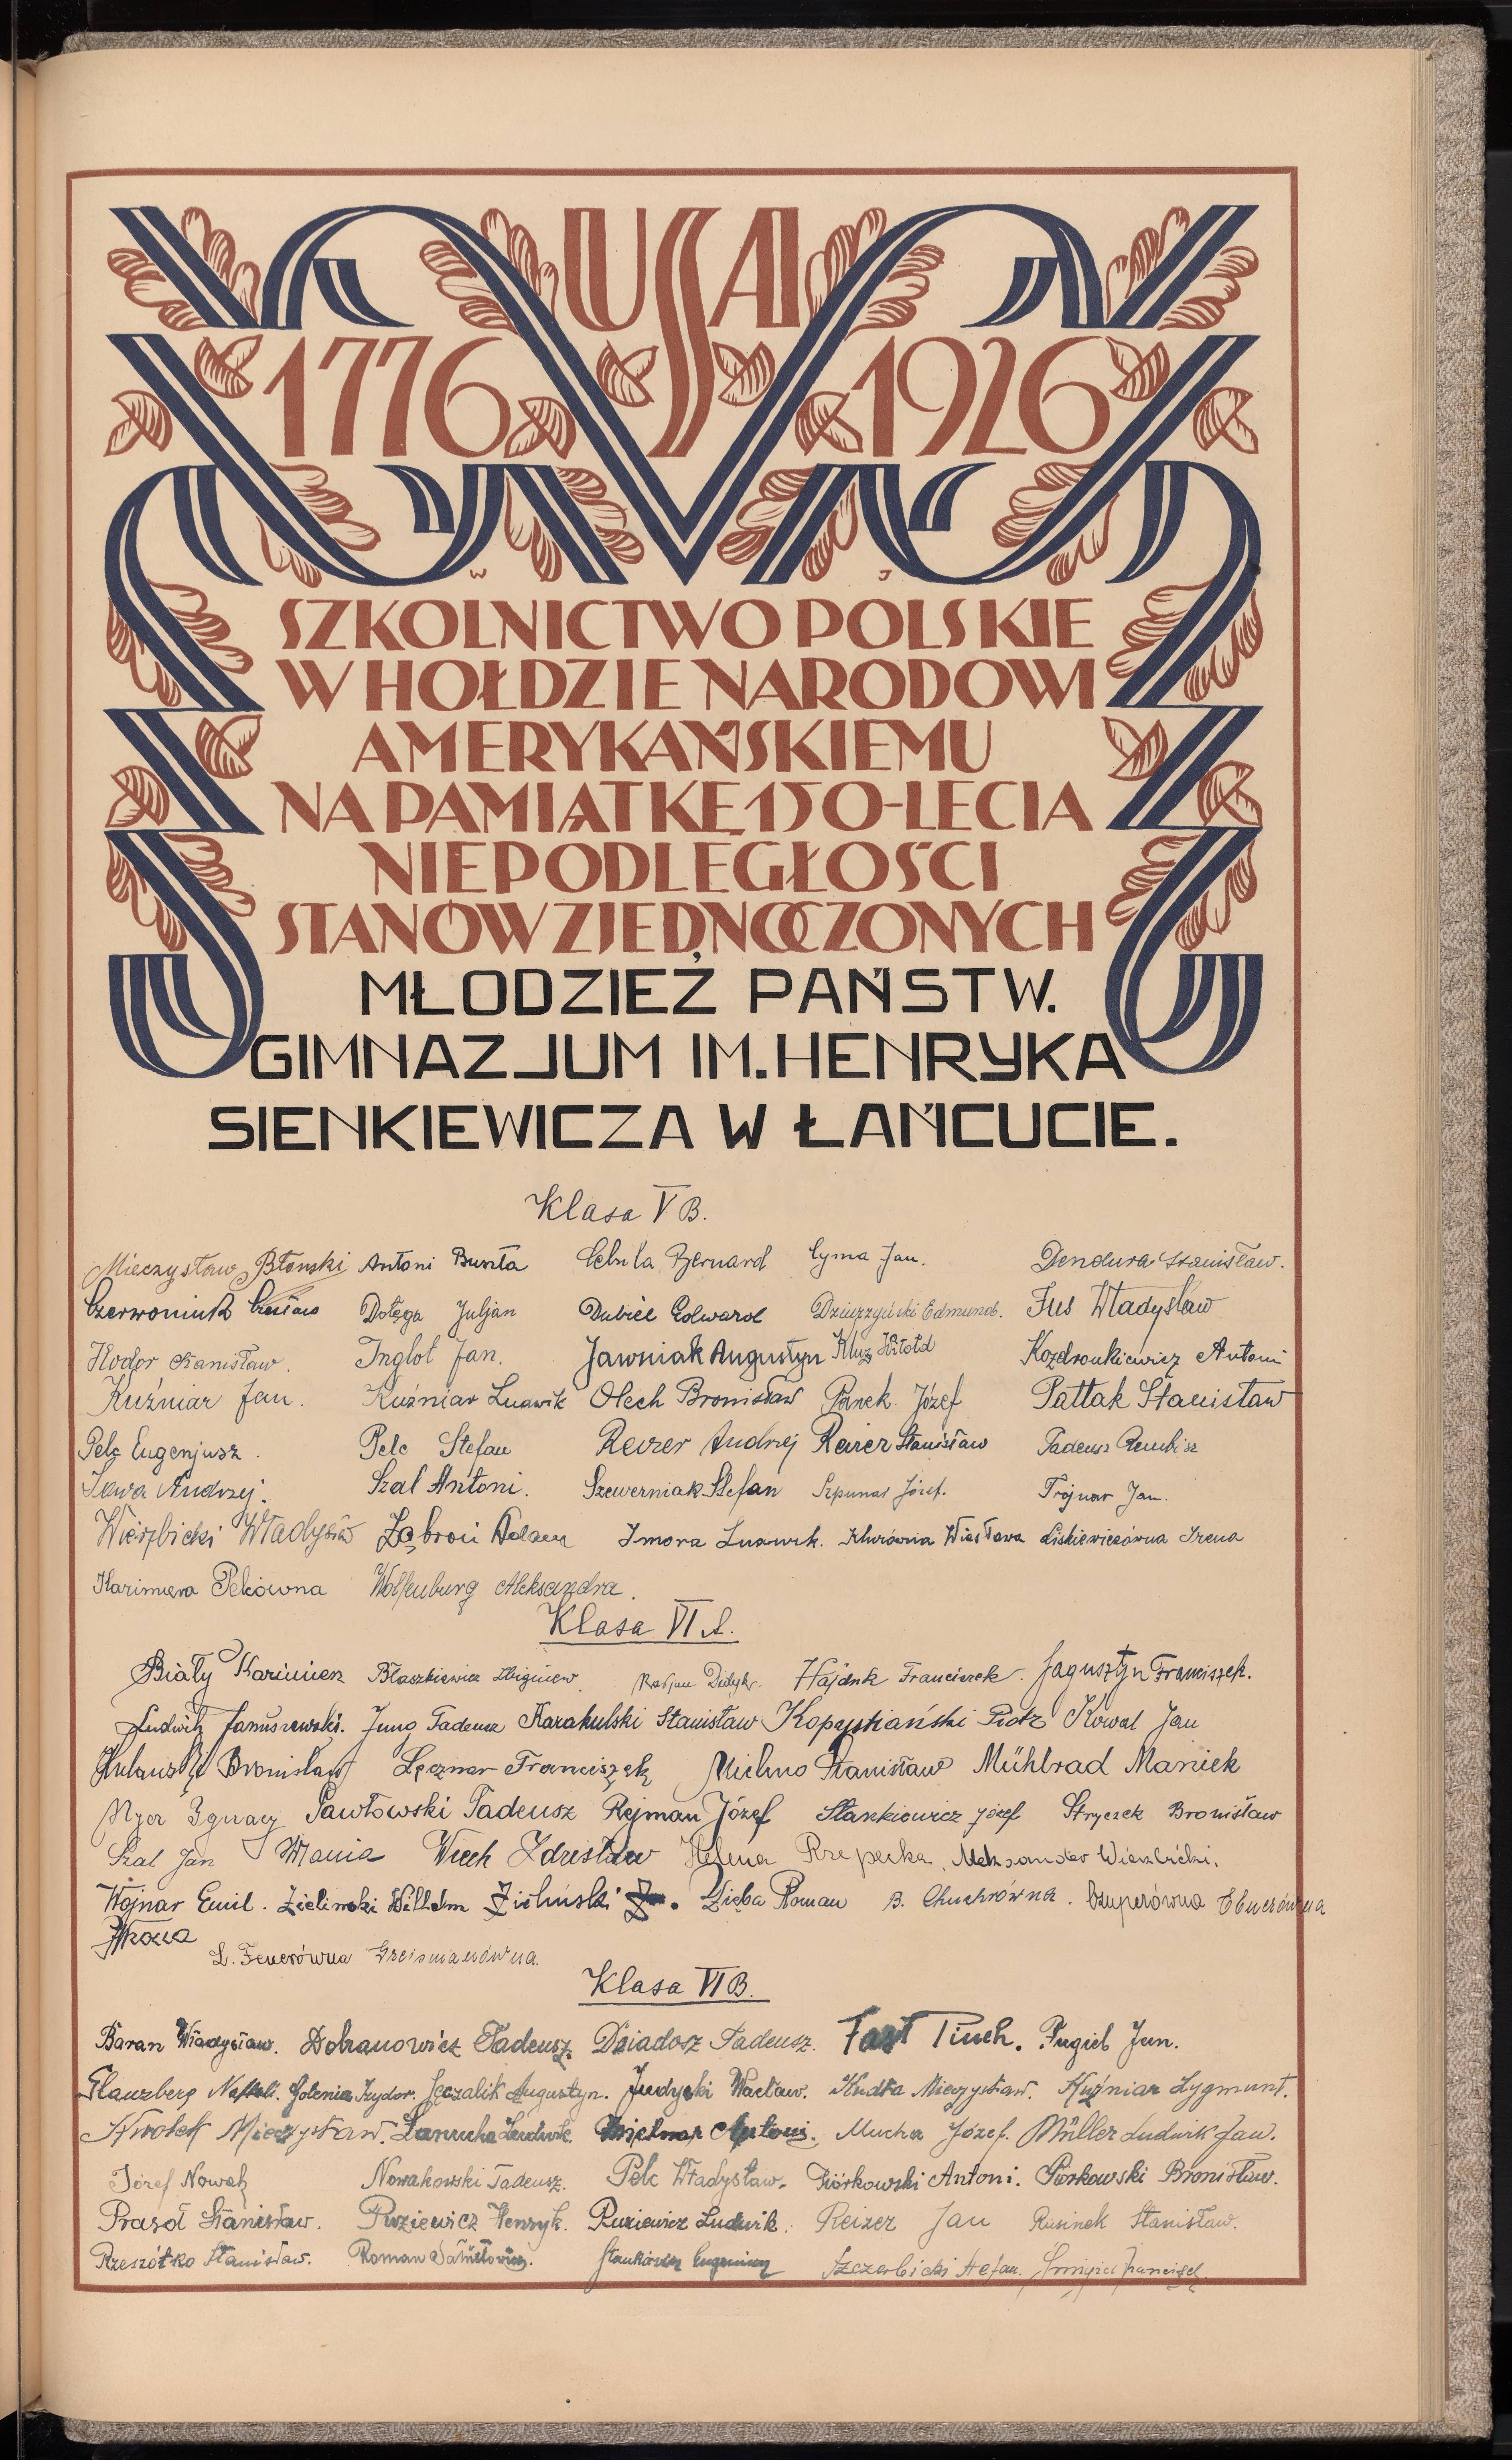 USA
1776 1926
W J
SZKOLNICTWO POLSKIE
W HOŁDZIE NARODOWI
AMERYKAŃSKIEMU
NA PAMIĄTKĘ 150-LECIA
NIEPODLEGŁOŚCI
STANÓW ZJEDNOCZONYCH
MŁODZIEŻ PAŃSTW.
GIMNAZJUM IM. HENRYKA
SIENKIEWICZA W ŁAŃCUCIE.
Klasa V B.
Mieczysław Błonski Antoni Buszta Cebula Bernard Cyma Jan. Dendura Stanisław.
Czerwoniuk Czesław Dołęga Juljan Dubiel Edward Edmund. Fus Władysław
Hodor Stanisław. Inglot Jan. Jawniak Augustyn Kluz Witold Kozdronkiewicz Antoni
Kuźniar Jan. Kuźniar Ludwik Olech Bronisław Panek Józef Pattak Stanisław
Pelc Eugenjusz. Pelc Stefan Reizer Andrzej Reizer Stanisław Tadeusz Rembisz
Sowa Andrzej. Szal Antoni. Szewerniak Stefan Szpunar Józef. Trojnar Jan.
Wierzbicki Władysław Adam Zmora Ludwik. Wiesława Liskiewiczówna Irena
Kazimiera Pelcówna Wolfenburg Aleksandra.
Klasa VI A.
Biały Kazimierz Błaszkiewicz Zbigniew. Hajduk Franciszek. Jagusztyn Franciszek.
Ludwik Januszewski. Jung Tadeusz Karakulski Stanisław Kopystiański Piotr Kowal Jan
Bronisław Łęcznar Franciszek Michno Stanisław Mühlrad Maniek
Ignacy Pawłowski Tadeusz Rejman Józef Stankiewicz Józef Stryczek Bronisław
Szal Jan Wania Wiech Zdzisław Helena Rzepecka. Aleksander Wierzbicki.
Wojnar Emil. Zielinski Wilhelm Zieliński J. Zięba Roman B. Chuchrówna. Czuperówna Ebnerówna
L. Feuerówna Greismanówna.
Klasa VI B.
Baran Władysław. Dobranowicz Tadeusz. Dziadosz Tadeusz. Fast Pinch. Fugiel Jan.
Glanzberg Naftali. Golenia Izydor. Jęczalik Augustyn. Judycki Wacław. Kudła Mieczysław. Kuźniar Zygmunt.
Kwołek Mieczysław. Łanucha Ludwik. Antoni. Mucha Józef. Müller Ludwik Jan.
Józef Nowak Nowakowski Tadeusz. Pelc Władysław. Piórkowski Antoni. Piórkowski Bronisław.
Prasoł Stanisław. Puziewicz Henryk. Puziewicz Ludwik. Reizer Jan Rusinek Stanisław.
Rzeszótko Stanisław. Roman Stankiewicz Eugeniusz Szczerbicki Stefan. Śmigiel Franciszek.